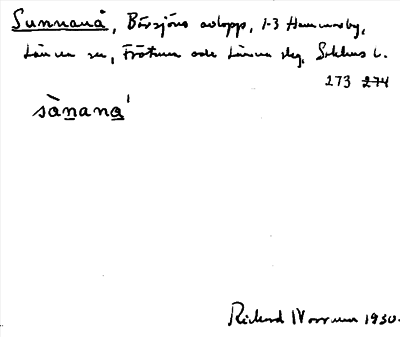 Sunnanå, Båvsjöns avlopp, 1-3 Hammarby,
Länna sn, Frötuna och Länna skg, Sthlms l.
273 274
sànaná
Rickard Norrman 1930.